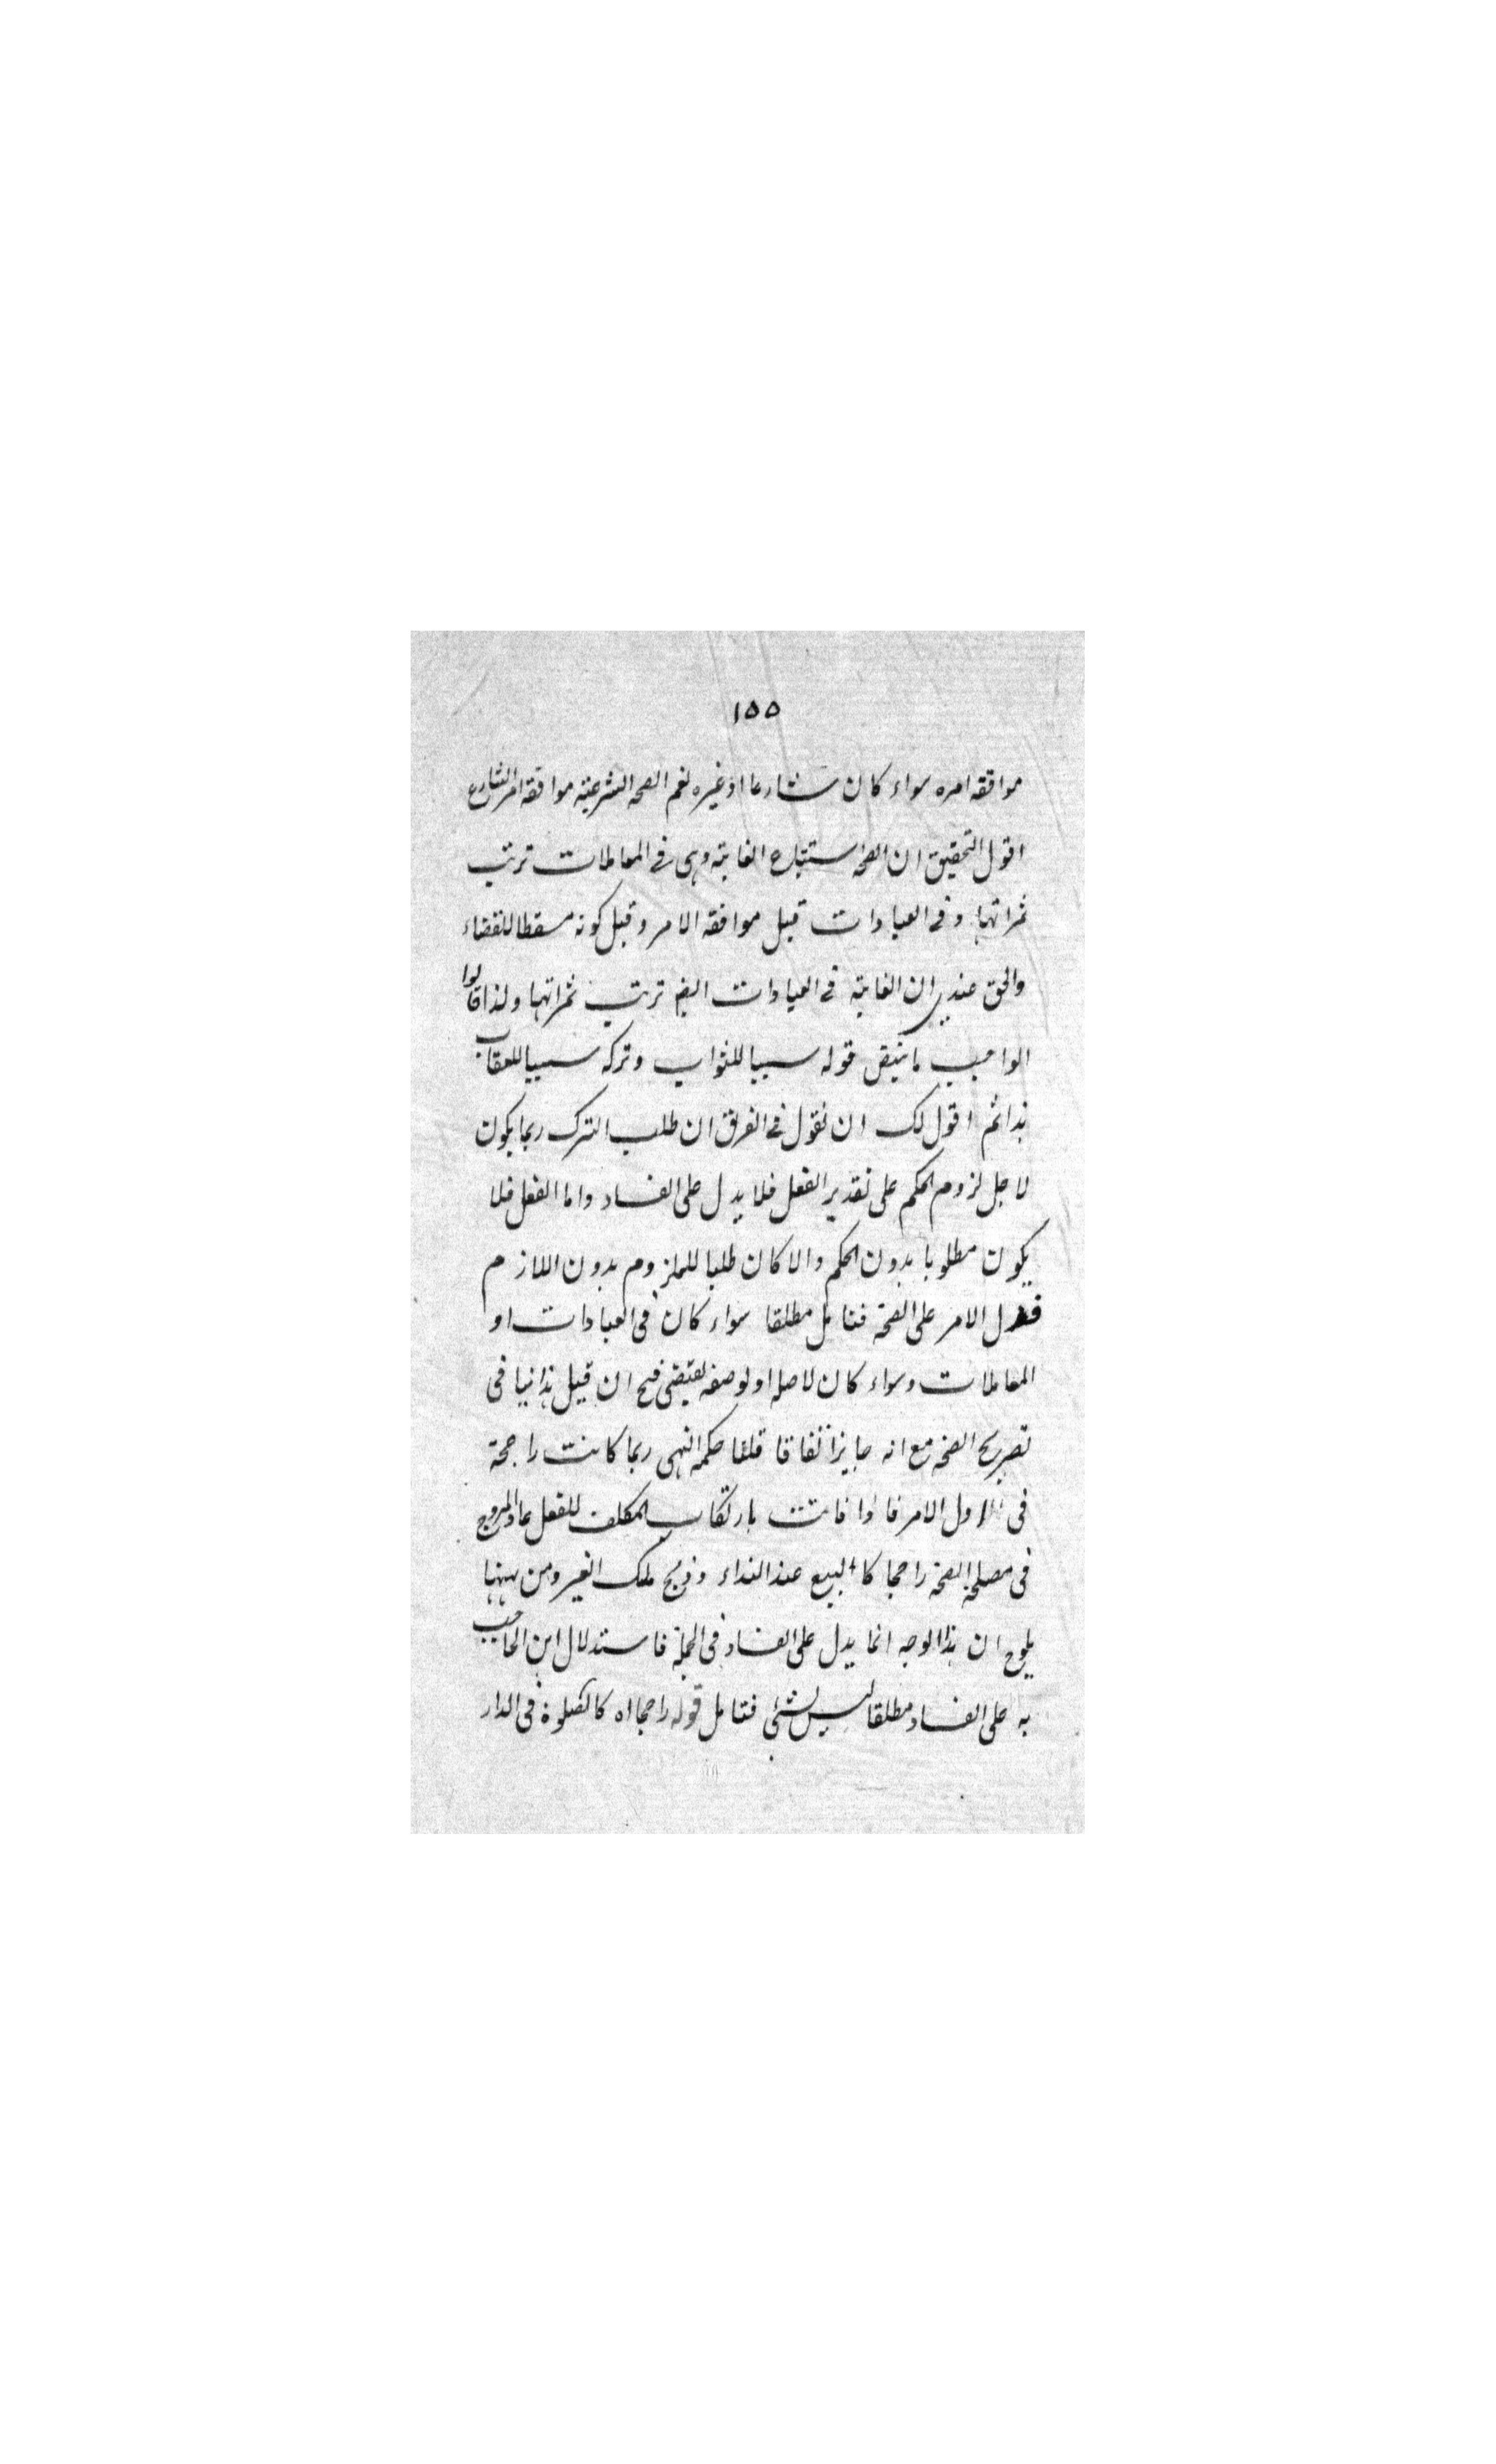 ١٥٥
موافقه امره سواء كان شارعا او غيره نعم الصحه الشرعيه موافقه امر الشارع
اقول التحقيق ان الصحه استتباع الغاية وهى فى المعاملات ترتب
ثمراتها وفى العبادات قيل موافقه الامر وقيل كونه مسقطا للقضاء
والحق عندى ان الغاية فى العبادات ايضا ترتب ثمراتها ولذا قالوا
الواجب ما ينتهض قوله سببا للثواب وتركه سببا للعقاب
هذا ثم اقول لك ان تقول فى الفرق ان طلب الترك ربما يكون
لاجل لزوم الحكم على تقدير الفعل فلا يدل على الفساد واما الفعل فلا
يكون مطلوبا بدون الحكم والا كان طلبا للملزوم بدون اللازم
فدل الامر على الصحة فتامل مطلقا سواء كان فى العبادات او
المعاملات وسواء كان لاصله او لوصفه يقتضى فيه ان قيل هذا ينافى
تصريح الصحه مع انه جايز اتفاقا قلنا حكمه النهى ربما كانت راجحة
فى اول الامر فاذا فاتت بارتكاب المكلف للفعل عاد المرجوح
فى مصلحة الصحة راجحا كالبيع عند النداء وذبح ملك الغير ومن ههنا
يلوح ان هذا الوجه انما يدل على الفساد فى الجملة فاستدلال ابن الحاجب
به على الفساد مطلقا ليس بشئ فتامل قوله راجحا اه كالصلوة فى الدار